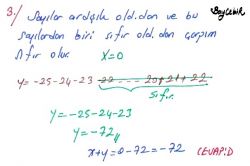 3/ Sayılar ardışık old.dan ve bu
Bay Çelik
sayılardan biri sıfır old.dan çarpım
sıfır olur. X=0
y= -25-24-23 -22 .... 20+21+22
Sıfır.
y= -25-24-23
y= -72//
x+y=0-72=-72
(CEVAP:D)